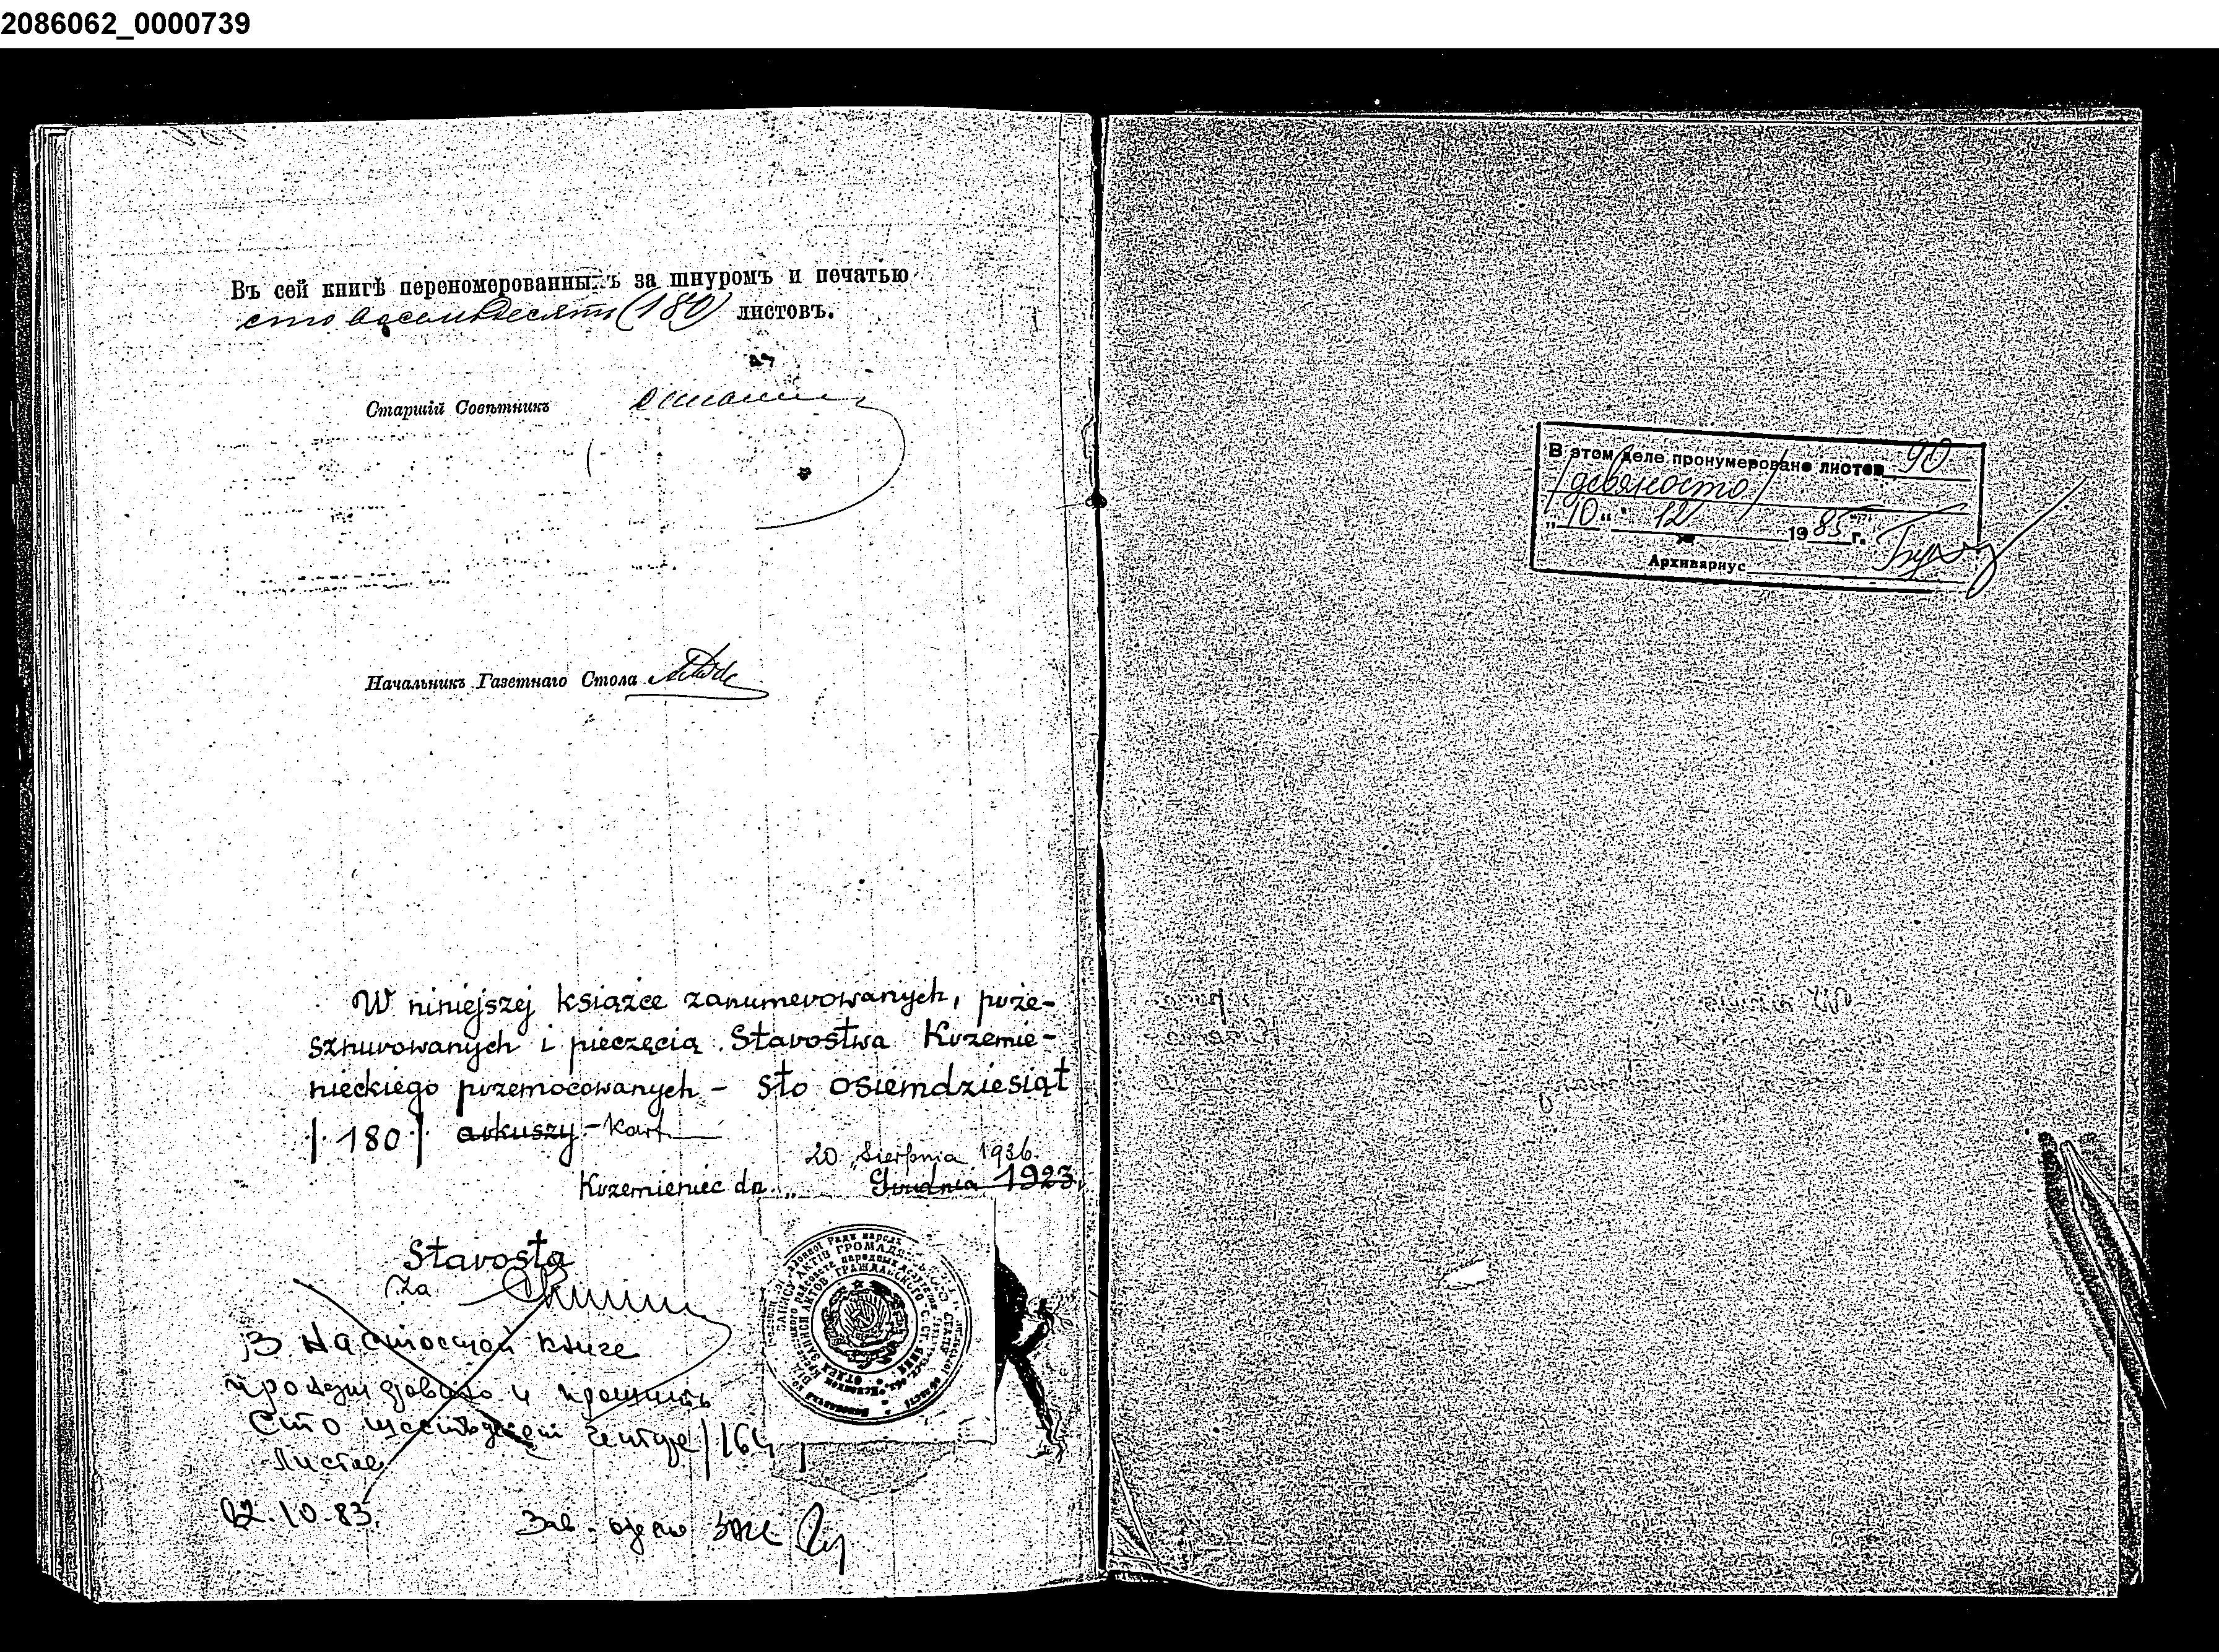 2086062_0000739
Въ сей книгѣ перономерованныхъ за шнуромъ и печатью
сто восемьдесятъ (180) листовъ.
Старшій Совѣтникъ
Начальникъ Газетнаго Стола
W niniejszej książce zanumerowanych, prze-
sznurowanych i pieczęcią Starostwa Krzemie-
nieckiego przemocowanych – sto osiemdziesiąt
/180/ arkuszy – kart
20 Sierpnia 1936.
Krzemieniec dn. „ Grudnia 1923.
Starosta
Za
В настоящей книге
пронумеровано и прошито
Сто шестьдесят четыре /164/
листов
02.10.83.
Зав. отдело
В этом деле пронумеровано листов 90
/девяносто/
„10“ 12 1985 г.
Архивариус